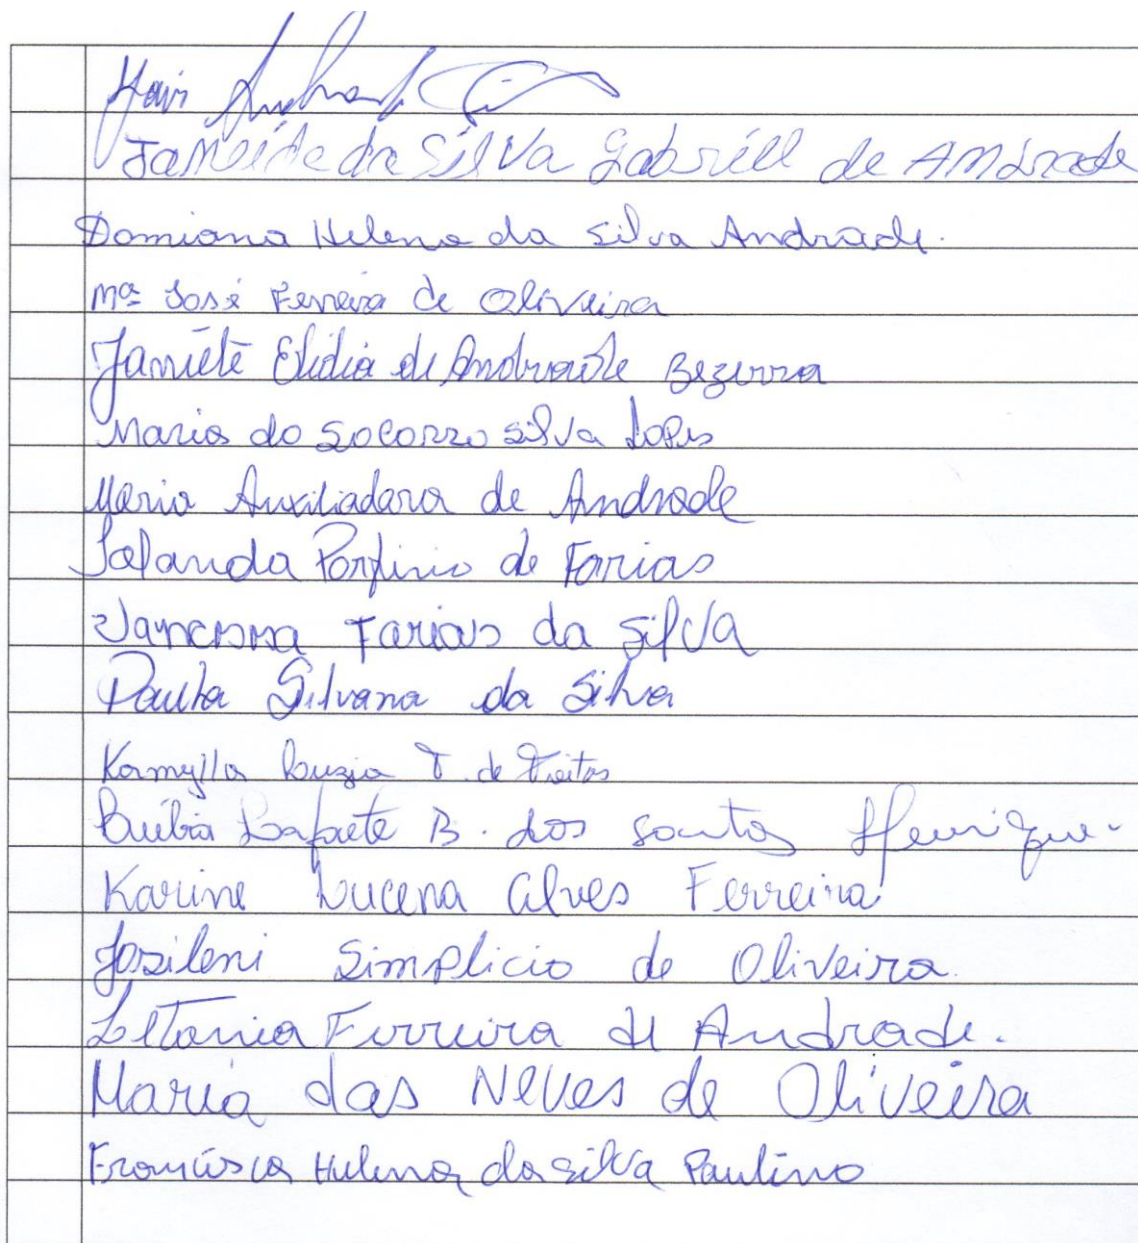 da Silva Gabriell de Andrade
Domiana Helena da Silva Andrade.
Mª José Ferreira de Oliveira
Janiete Elidia de Andrade Bezerra
Maria do Socorro Silva Lopes
Maria Auxiliadora de Andrade
Porfirio de Farias
Vanessa Farias da Silva
Paula Silvana da Silva
Kamylla Luzia T. de Freitas
Lafaete B. dos Santos Henrique.
Karine Lucena Alves Ferreira
Josileni Simplicio de Oliveira.
Letania Ferreira de Andrade.
Maria das Neves de Oliveira
Francisca Helena da Silva Paulino